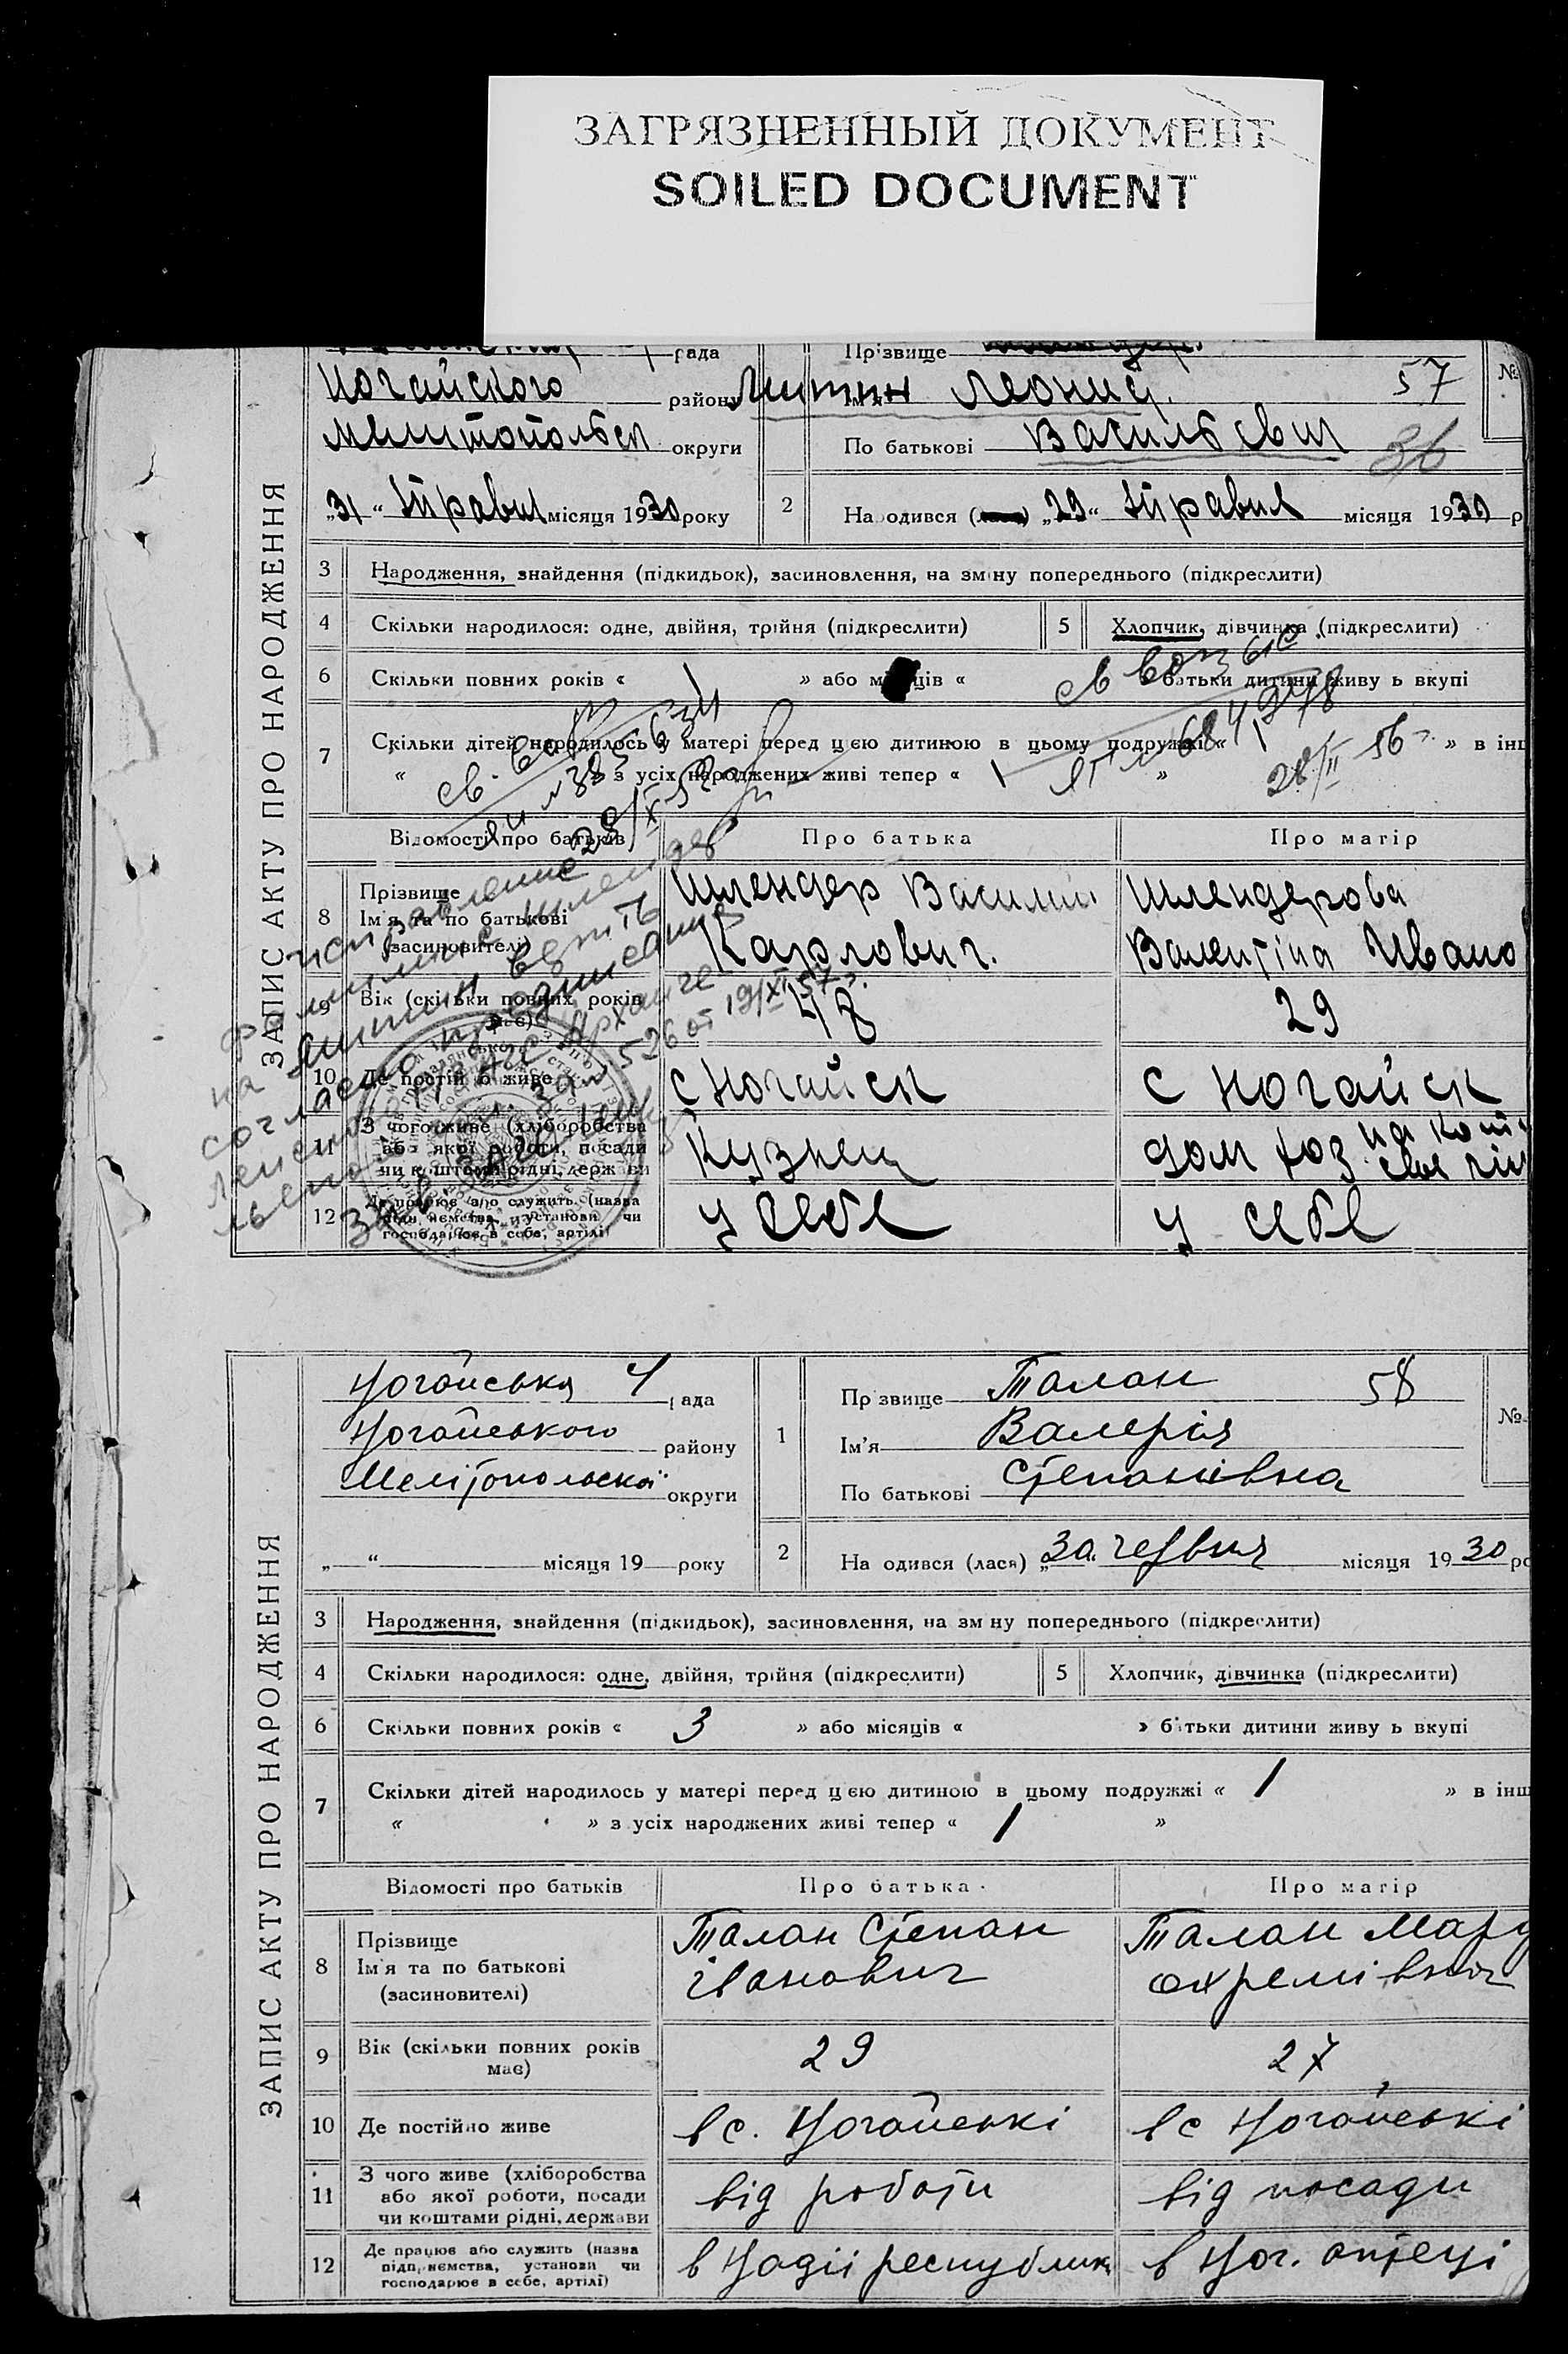 ЗАГРЯЗНЕННЫЙ ДОКУМЕНТ
SOILED DOCUMENT
ЗАПИС АКТУ ПРО НАРОДЖЕННЯ
рада
Ногайского району
округи
„31“ місяця 1930 року
Прізвище
Ім'я Леонид. 57
По батькові Васильевич 36
№
2 Народився „29“ місяця 1930 р
3 Народження, знайдення (підкидьок), засиновлення, на зміну попереднього (підкреслити)
4 Скільки народилося: одне, двійня, трійня (підкреслити)
5 Хлопчик, дівчинка (підкреслити)
6 Скільки повних років « » або місяців « батьки дитини живуть вкупі
7 Скільки дітей народилось у матері перед цією дитиною в цьому подружжі « 1 » в інш
« » з усіх народжених живі тепер « 1 »
28/II 56
Відомості про батьків Про батька Про матір
8 Прізвище
Ім'я та по батькові
(засиновителі)
Шлендер Василий
Карлович.
Шлендерова
Валентіна Ивано
9 Вік (скільки повних років
має)
48 29
10 Де постійно живе
с Ногайск с Ногайск
11 З чого живе (хліборобства
або якої роботи, посади
чи коштами рідні, держави
Кузнец
дом хоз.
12 Де працює або служить (назва
підприємства, установи чи
господарює в себе, артілі)
у себе у себе
исправление
фамилии с Шлендер
на
согласно
526 от 19/XI 57 г.
ЗАПИС АКТУ ПРО НАРОДЖЕННЯ
Ногайська 4 рада
Ногайського району
Мелітопольскої округи
„ “ місяця 19 року
1 Прізвище Талан 58
Ім'я Валерія
По батькові Степанівна
№
2 Народився (лася) „30“ червня місяця 1930 ро
3 Народження, знайдення (підкидьок), засиновлення, на зміну попереднього (підкреслити)
4 Скільки народилося: одне, двійня, трійня (підкреслити)
5 Хлопчик, дівчинка (підкреслити)
6 Скільки повних років « 3 » або місяців « » батьки дитини живуть вкупі
7 Скільки дітей народилось у матері перед цією дитиною в цьому подружжі « 1 » в інш
« » з усіх народжених живі тепер « 1 »
Відомості про батьків Про батька Про матір
8 Прізвище
Ім'я та по батькові
(засиновителі)
Талан Степан
іванович
Талан Мару
охремівна
9 Вік (скільки повних років
має)
29 27
10 Де постійно живе
в с. Ногайські в с Ногайські
11 З чого живе (хліборобства
або якої роботи, посади
чи коштами рідні, держави
від роботи від посади
12 Де працює або служить (назва
підприємства, установи чи
господарює в себе, артілі)
в Надії республики в Ног. аптеці